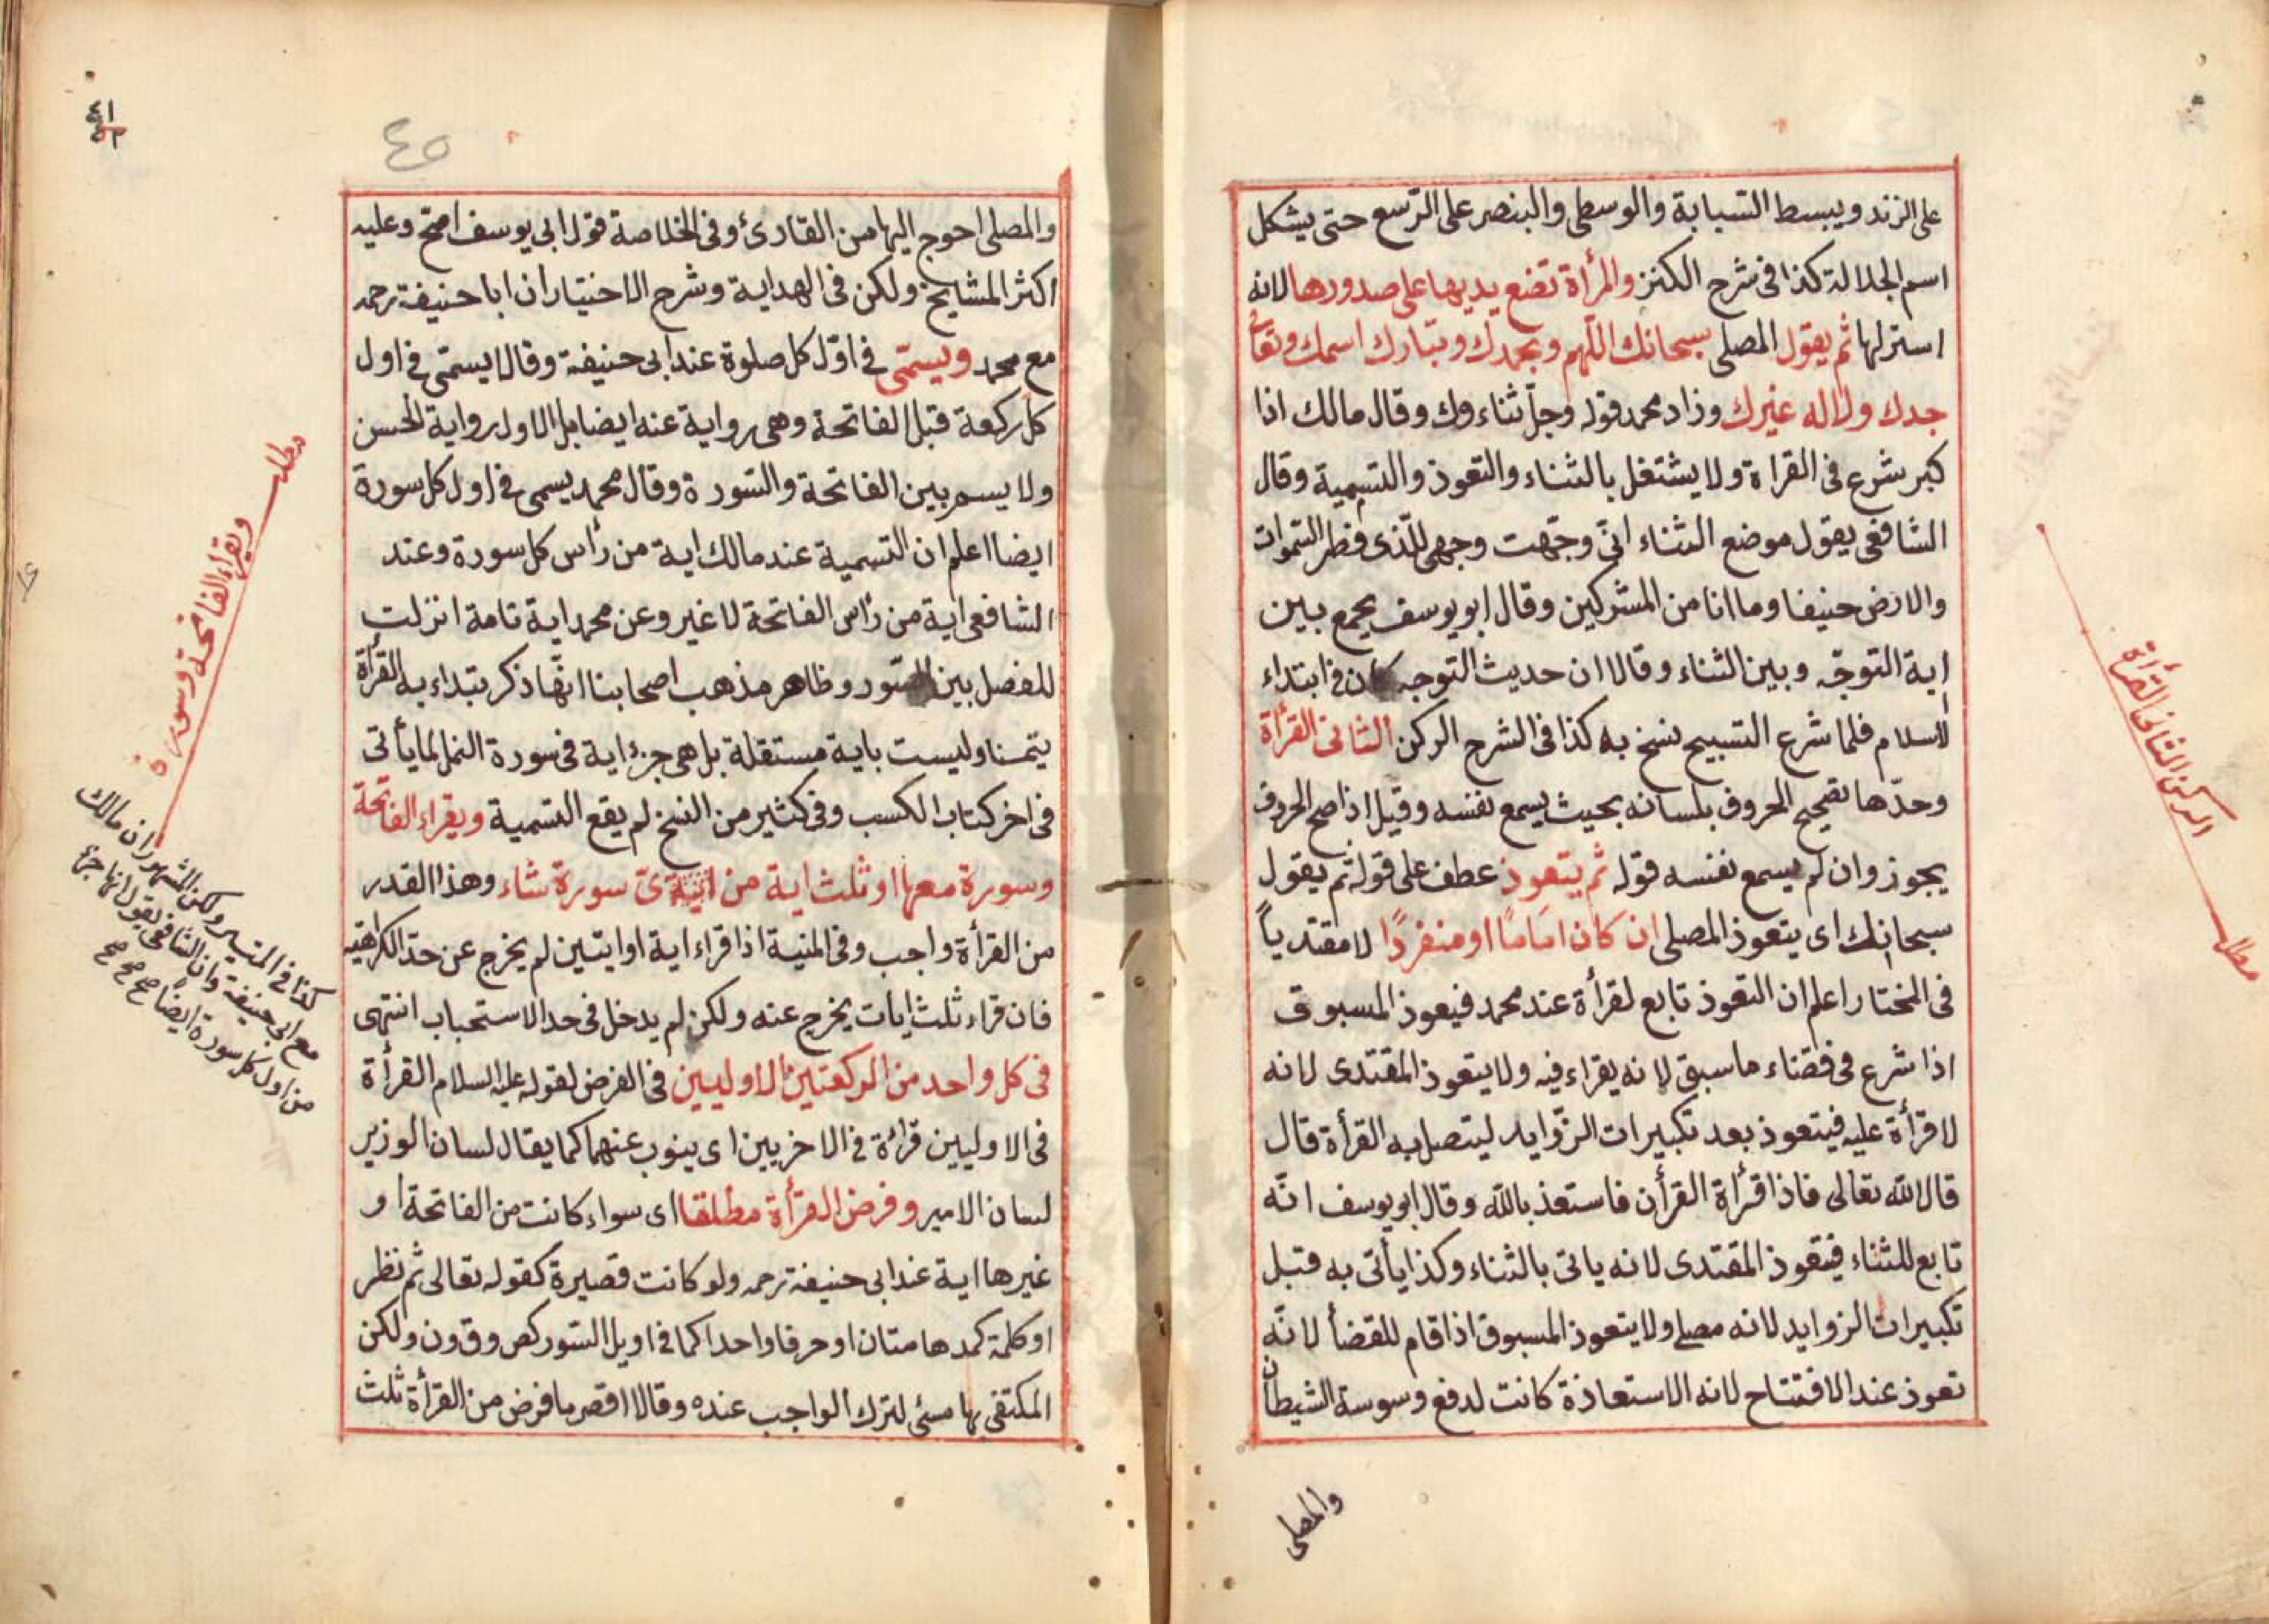 على الزند ويبسط السبابة والوسطى والبنصر على الرسغ حتى يشكل
اسم الجلالة كذا فى شرح الكنز والمرأة تضع يديها على صدورها لانه
استرلها ثم يقول المصلى سبحانك اللهم وبحمدك وتبارك اسمك وتعالى
جدك ولا اله غيرك وزاد محمد قوله وجل ثناءوك وقال مالك اذا
كبر شرع فى القراة ولا يشتغل بالثناء والتعوذ والتسمية وقال
الشافعى يقول موضع الثناء انى وجهت وجهى للذى فطر السموات
والارض حنيفا وما انا من المشركين وقال ابو يوسف يجمع بين
اية التوجه وبين الثناء وقالا ان حديث التوجه كان فى ابتداء
الاسلام فلما شرع التسبيح نسخ به كذا فى الشرح الركن الثانى القرأة
وحدها تصحيح الحروف بلسانه بحيث يسمع نفسه وقيل اذا صح الحروف
يجوز وان لم يسمع نفسه قوله ثم يتعوذ عطف على قوله ثم يقول
سبحانك اى يتعوذ المصلى ان كان امَامًا او منفردًا لا مقتدياً
فى المختار اعلم ان التعوذ تابع لقرأة عند محمد فيعوذ المسبوق
اذا شرع فى قضاء ما سبق لانه يقراء فيه ولا يتعوذ المقتدى لانه
لا قرأة عليه فيتعوذ بعد تكبيرات الزوايد ليتصل به القرأة قال
قال الله تعالى فاذا قرأة القرأن فاستعذ بالله وقال ابو يوسف انه
تابع للثناء فيتعوذ المقتدى لانه ياتى بالثناء وكذا ياتى به قبل
تكبيرات الزوايد لانه مصلى ولا يتعوذ المسبوق اذا قام للقضأ لانه
تعوذ عند الافتتاح لانه الاستعاذة كانت لدفع وسوسة الشيطان
والمصلى
الركن الثانى القرأة
مطلب
٤٥
٤١
والمصلى احوج اليها من القارئ وفى الخلاصة قول ابى يوسف اصح وعليه
اكثر المشايخ ولكن فى الهداية وشرح الاختيار ان ابا حنيفة رحمه
مع محمد ويسمّى فى اوّل كل صلوة عند ابى حنيفة وقالا يسمّى فى اول
كل ركعة قبل الفاتحة وهى رواية عنه ايضا بل الاول رواية الحسن
ولا يسم بين الفاتحة والسورة وقال محمد يسمى فى اول كل سورة
ايضا اعلم ان التسمية عند مالك اية من رأس كل سورة وعند
الشافعى اية من رأس الفاتحة لا غير وعن محمد اية تامة انزلت
للفصل بين السور وظاهر مذهب اصحابنا انها ذكر يبتداء به القرأة
يتمنا وليست باية مستقلة بل هى جزء اية فى سورة النمل لما يأتى
فى اخر كتاب الكسب وفى كثير من النسخ لم يقع التسمية ويقراء الفاتحة
وسورة معها او ثلث اية من اىّ سورة شاء وهذا القدر
من القرأة واجب وفى المنية اذا قراء اية او ايتين لم يخرج عن حدّ الكراهية
فان قراء ثلث ايات يخرج عنه ولكن لم يدخل فى حد الاستحباب انتهى
فى كل واحد من الركعتين الاوليين فى الفرض لقوله عليه السلام القرأة
فى الاوليين قرائة فى الاخريين اى ينوب عنهما كما يقال لسان الوزير
لسان الامير وفرض القرأة مطلقا اى سواء كانت من الفاتحة او
غيرها اية عند ابى حنيفة رحمه ولو كانت قصيرة كقوله تعالى ثم نظر
او كلمة كمدهامتان او حرفا واحدا كما فى اويل السور كص وق ون ولكن
المكتفى بها مسئ لترك الواجب عنده وقالا اقصر ما فرض من القرأة ثلث
مطلب
ويقراء الفاتحة وسورة
كذا فى التيسير ولكن المشهور ان مالك
مع ابى حنيفة وان الشافعى يقول انها جزء
من اول كل سورة ايضا صح صح صح